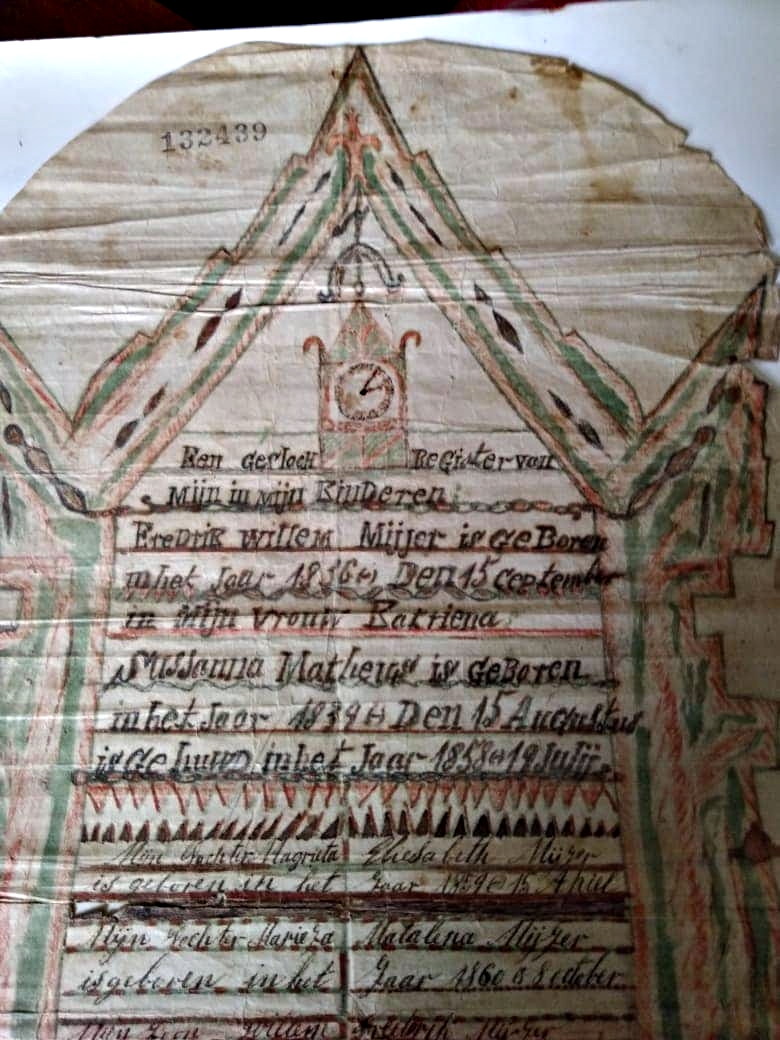 132439
Een geslocht Register van
Mijn in Mijn Kinderen
Fredrik Willem Mijjer is geBoren
in het Jaar 1836 Den 15 September
in Mijn vrouw Katriena
Sussanna Matheus is GeBoren
in het Jaar 1839 Den 15 Augustus
is getround in het Jaar 1858 19 Julij
Mijn Dochter Magrita Eliesabeth Mijzer
is geboren in het Jaar 1859 15 April
Mijn Dochter Marieza Matalena Mijzer
is geboren in het Jaar 1860 8 October
Mijn Zoon Willem Fredrik Mijzer